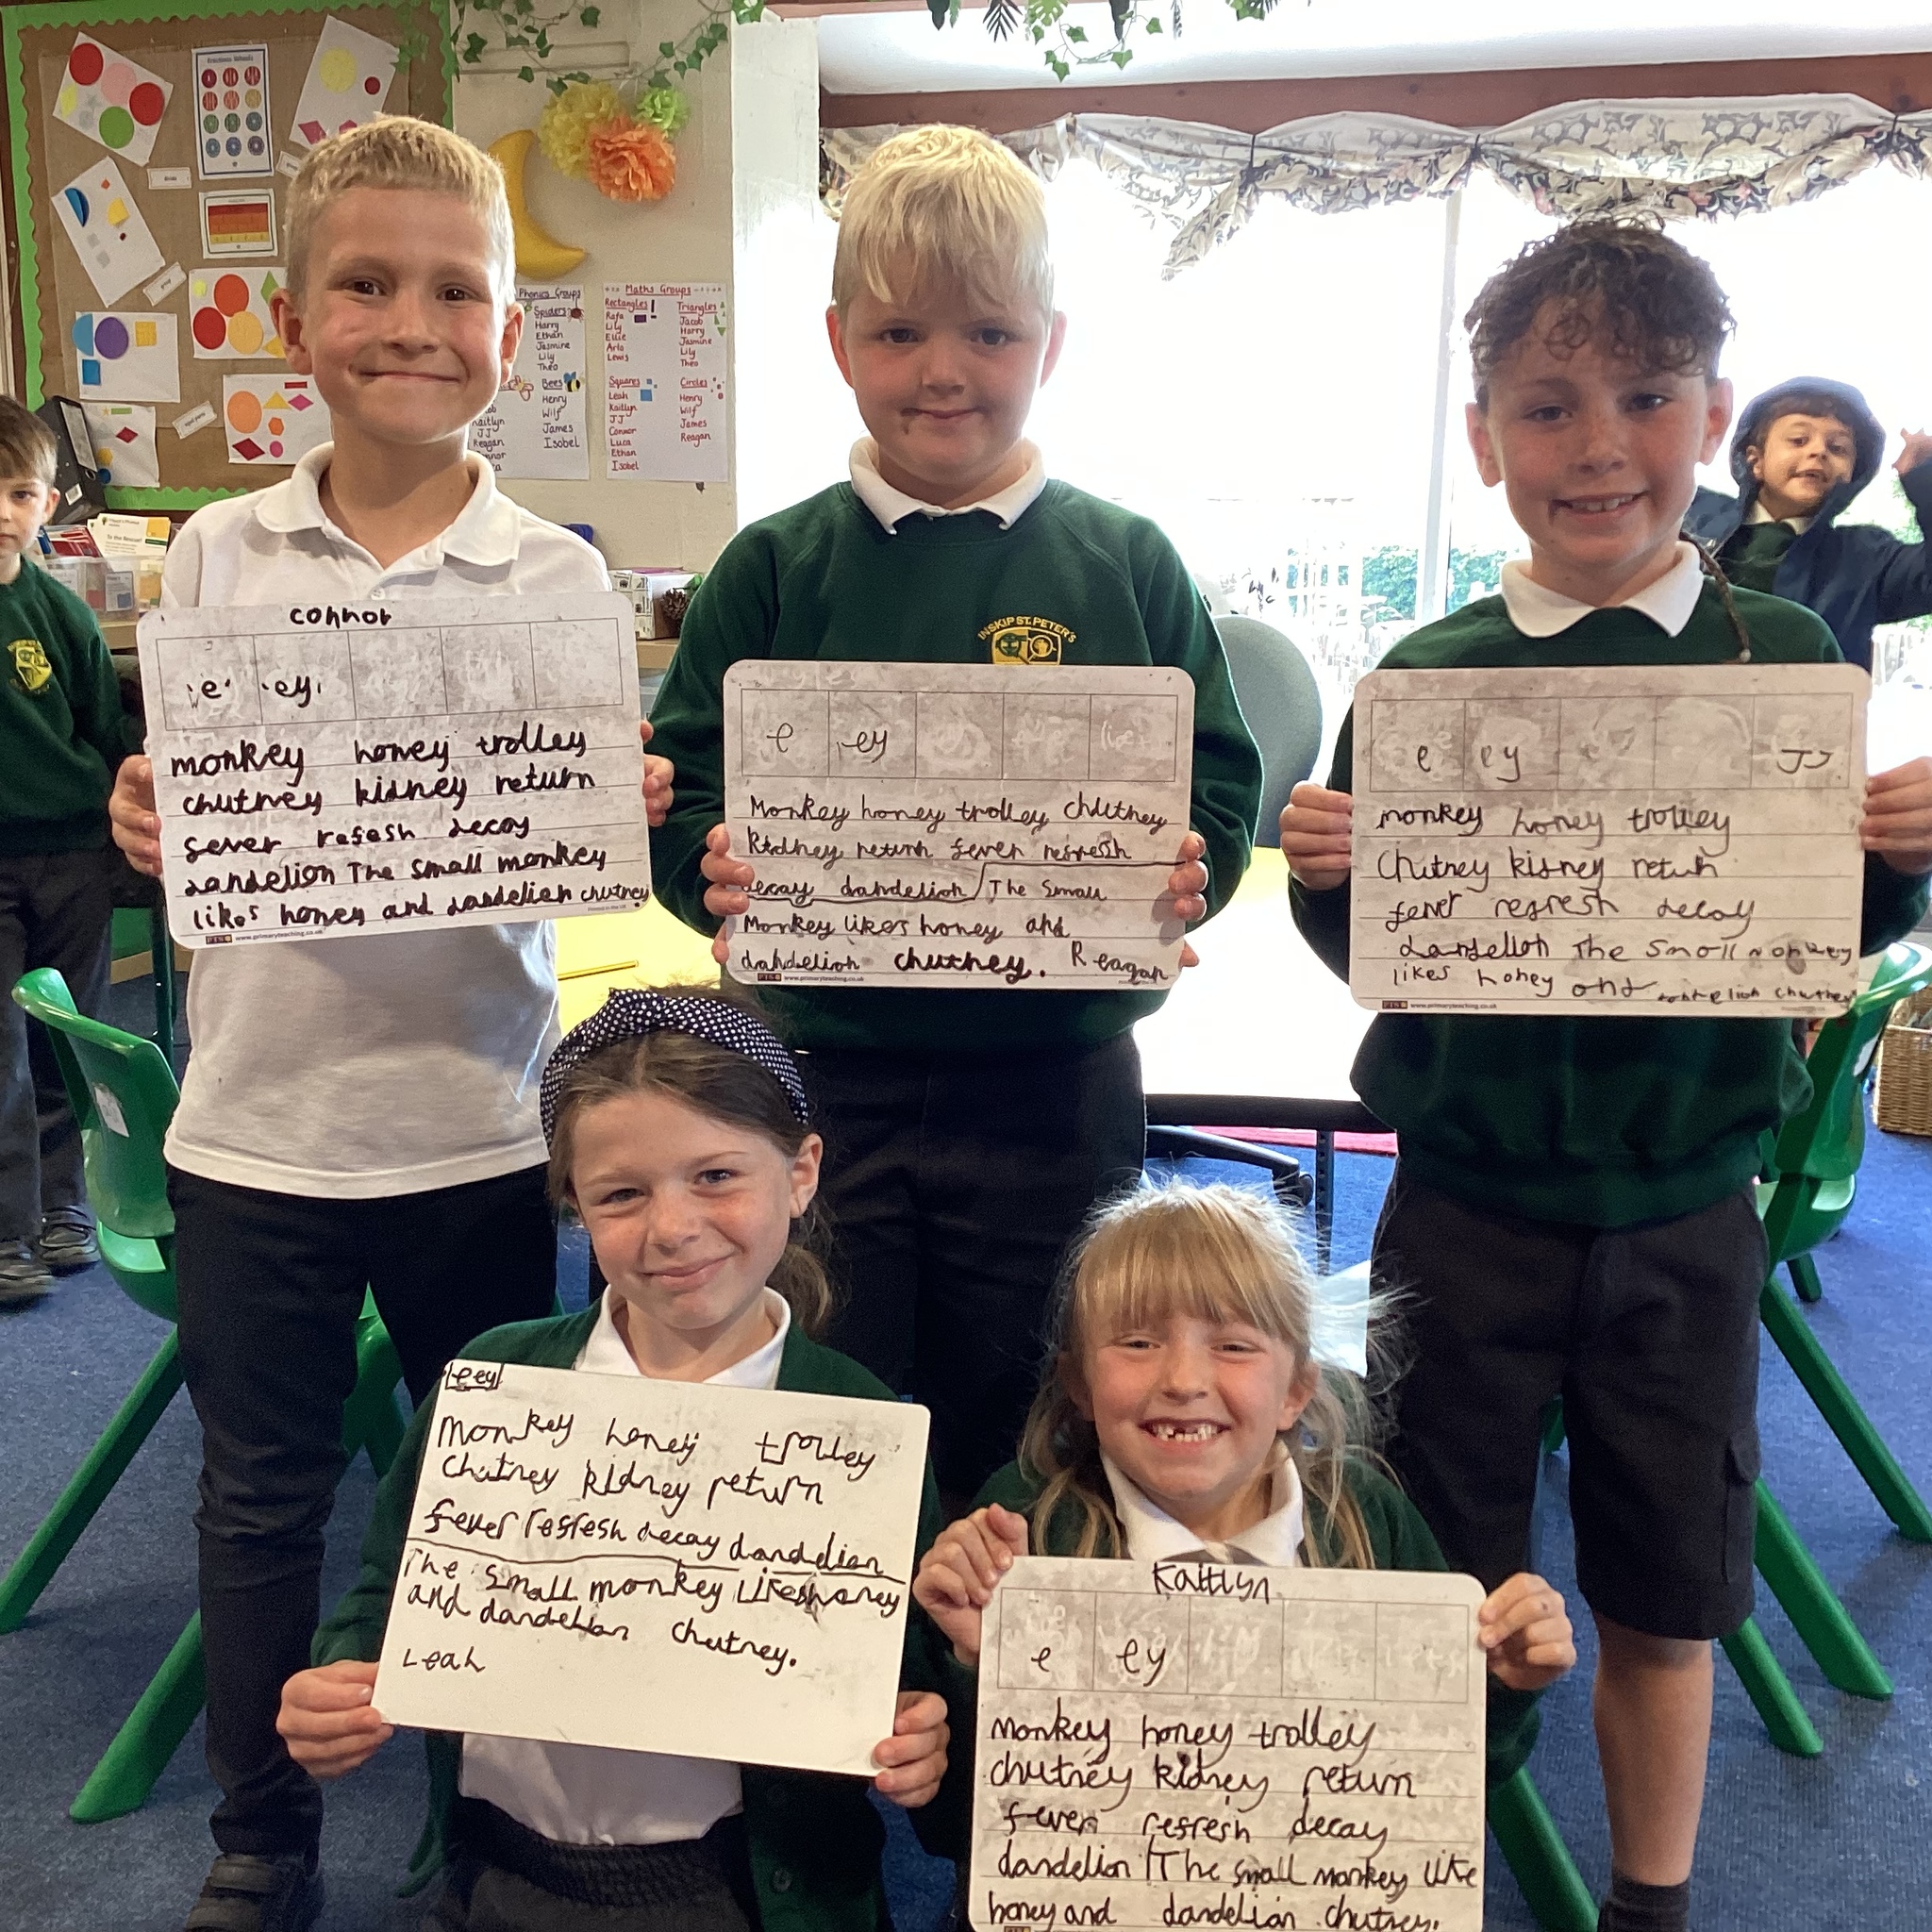 Fractions Wheels
Phonics Groups
Spiders
Harry
Ethan
Jasmine
Lily
Theo
Bees
Henry
Wilf
James
Isobel
Kaitlyn
JJ
Reagan
Maths Groups
Rectangles
Rafa
Lily
Ellie
Arlo
Lewis
Triangles
Jacob
Harry
Jasmine
Lily
Theo
Squares
Leah
Kaitlyn
JJ
Connor
Luca
Ethan
Isobel
Circles
Henry
Wilf
James
Reagan
To the Rescue!
INSKIP ST. PETER'S
connor
'e' 'ey'
monkey honey trolley
chutney kidney return
fever refesh decay
dandelion The small monkey
likes honey and dandelion chutney
www.primaryteaching.co.uk
e ey
Monkey honey trolley chutney
Kidney return fever refresh
decay dandelion The small
Monkey likes honey and
dandelion chutney. Reagan
www.primaryteaching.co.uk
e ey JJ
monkey honey trolley
Chutney kidney return
fever refresh decay
dandelion The small monkey
likes honey and dandelion chutney
www.primaryteaching.co.uk
e ey
Monkey honey trolley
Chutney kidney return
fever refresh decay dandelion
The small monkey likes honey
and dandelion chutney.
Leah
Kaitlyn
e ey
monkey honey trolley
chutney kidney return
fever refresh decay
dandelion The small monkey like
honey and dandelion chutney.